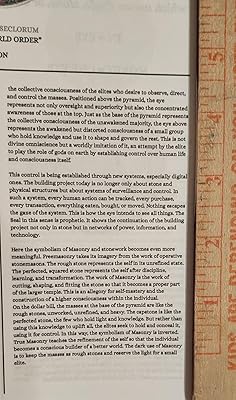 SECLORUM
RLD ORDER"
ON
the collective consciousness of the elites who desire to observe, direct,
and control the masses. Positioned above the pyramid, the eye
represents not only oversight and superiority but also the concentrated
awareness of those at the top. Just as the base of the pyramid represents
the collective consciousness of the unawakened majority, the eye above
represents the awakened but distorted consciousness of a small group
who hold knowledge and use it to shape and govern the rest. This is not
divine omniscience but a worldly imitation of it, an attempt by the elite
to play the role of gods on earth by establishing control over human life
and consciousness itself.
This control is being established through new systems, especially digital
ones. The building project today is no longer only about stone and
physical structures but about systems of surveillance and control. In
such a system, every human action can be tracked, every purchase,
every transaction, everything eaten, bought, or moved. Nothing escapes
the gaze of the system. This is how the eye intends to see all things. The
Seal in this sense is prophetic. It shows the continuation of the building
project not only in stone but in networks of power, information, and
technology.
Here the symbolism of Masonry and stonework becomes even more
meaningful. Freemasonry takes its imagery from the work of operative
stonemasons. The rough stone represents the self in its unrefined state.
The perfected, squared stone represents the self after discipline,
learning, and transformation. The work of Masonry is the work of
cutting, shaping, and fitting the stone so that it becomes a proper part
of the larger temple. This is an allegory for self-mastery and the
construction of a higher consciousness within the individual.
On the dollar bill, the masses at the base of the pyramid are like the
rough stones, unworked, unrefined, and heavy. The capstone is like the
perfected stone, the few who hold light and knowledge. But rather than
using this knowledge to uplift all, the elites seek to hold and conceal it,
using it for control. In this way, the symbolism of Masonry is inverted.
True Masonry teaches the refinement of the self so that the individual
becomes a conscious builder of a better world. The dark use of Masonry
is to keep the masses as rough stones and reserve the light for a small
elite.